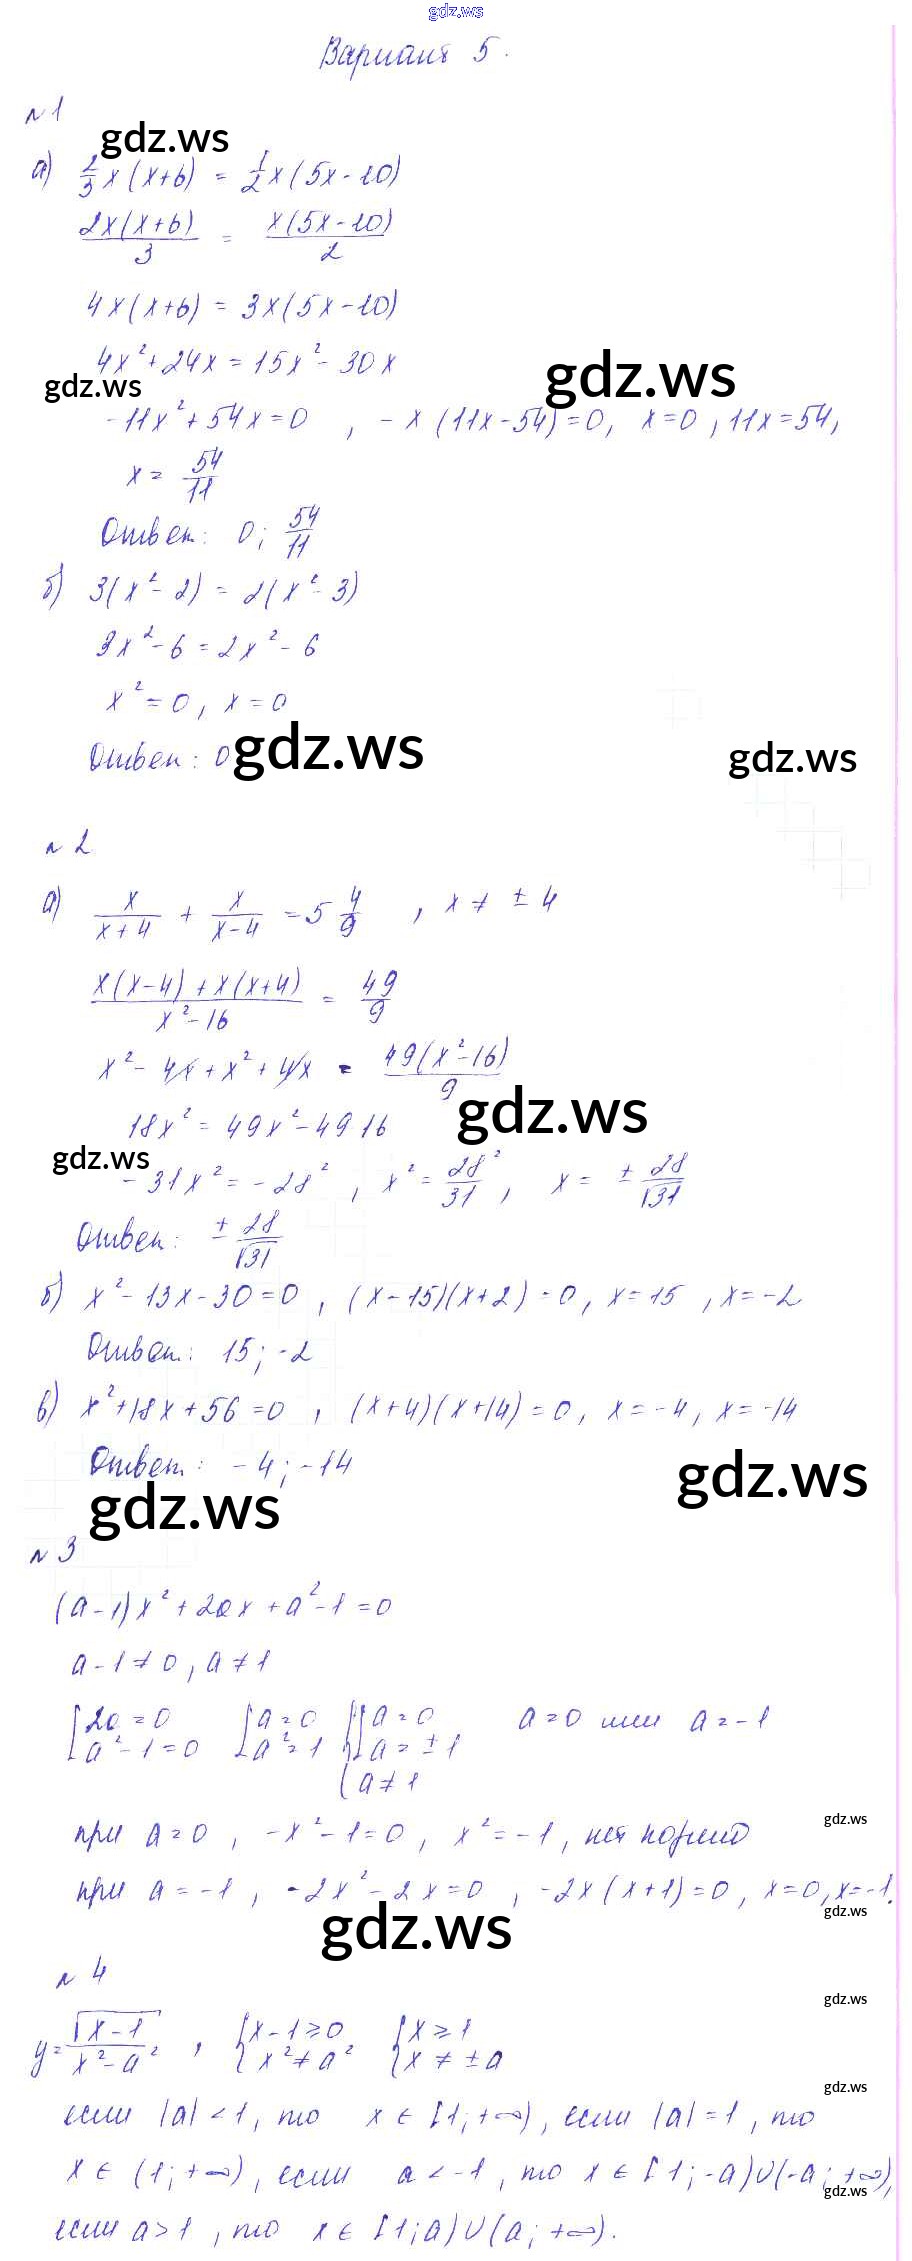 gdz.ws
Вариант 5.
n 1
gdz.ws
а) 2/3 x (x+6) = 1/2 x (5x-10)
2x(x+6)/3 = x(5x-10)/2
4x(x+6) = 3x(5x-10)
4x²+24x = 15x²-30x
gdz.ws gdz.ws
-11x²+54x=0 , -x(11x-54)=0, x=0, 11x=54,
x = 54/11
Ответ: 0; 54/11
б) 3(x²-2) = 2(x²-3)
3x²-6=2x²-6
x²=0, x=0
Ответ: 0
gdz.ws gdz.ws
n 2
а) x/(x+4) + x/(x-4) = 5 4/9 , x ≠ ±4
(x(x-4)+x(x+4))/(x²-16) = 49/9
x²-4x+x²+4x = 49(x²-16)/9
gdz.ws
18x² = 49x²-49·16
gdz.ws
-31x²=-28² , x²=28²/31 , x= ±28/√31
Ответ: ±28/√31
б) x²-13x-30=0 , (x-15)(x+2)=0, x=15 , x=-2
Ответ: 15; -2
в) x²+18x+56=0 , (x+4)(x+14)=0, x=-4, x=-14
Ответ: -4; -14
gdz.ws gdz.ws
n 3
(a-1)x²+2ax+a²-1=0
a-1≠0, a≠1
[2a=0 [a=0 {[a=0 a=0 или a=-1
[a²-1=0 [a²=1 {[a=±1
{a≠1
при a=0 , -x²-1=0 , x²=-1, нет корней
gdz.ws
при a=-1 , -2x²-2x=0 , -2x(x+1)=0, x=0, x=-1.
gdz.ws gdz.ws
n 4
gdz.ws
y=√(x-1)/(x²-a²) , {x-1≥0 {x≥1
{x²≠a² {x≠±a
gdz.ws
если |a|<1, то x∈[1;+∞), если |a|=1, то
x∈(1;+∞), если a<-1, то x∈[1;-a)∪(-a;+∞),
gdz.ws
если a>1, то x∈[1;a)∪(a;+∞).